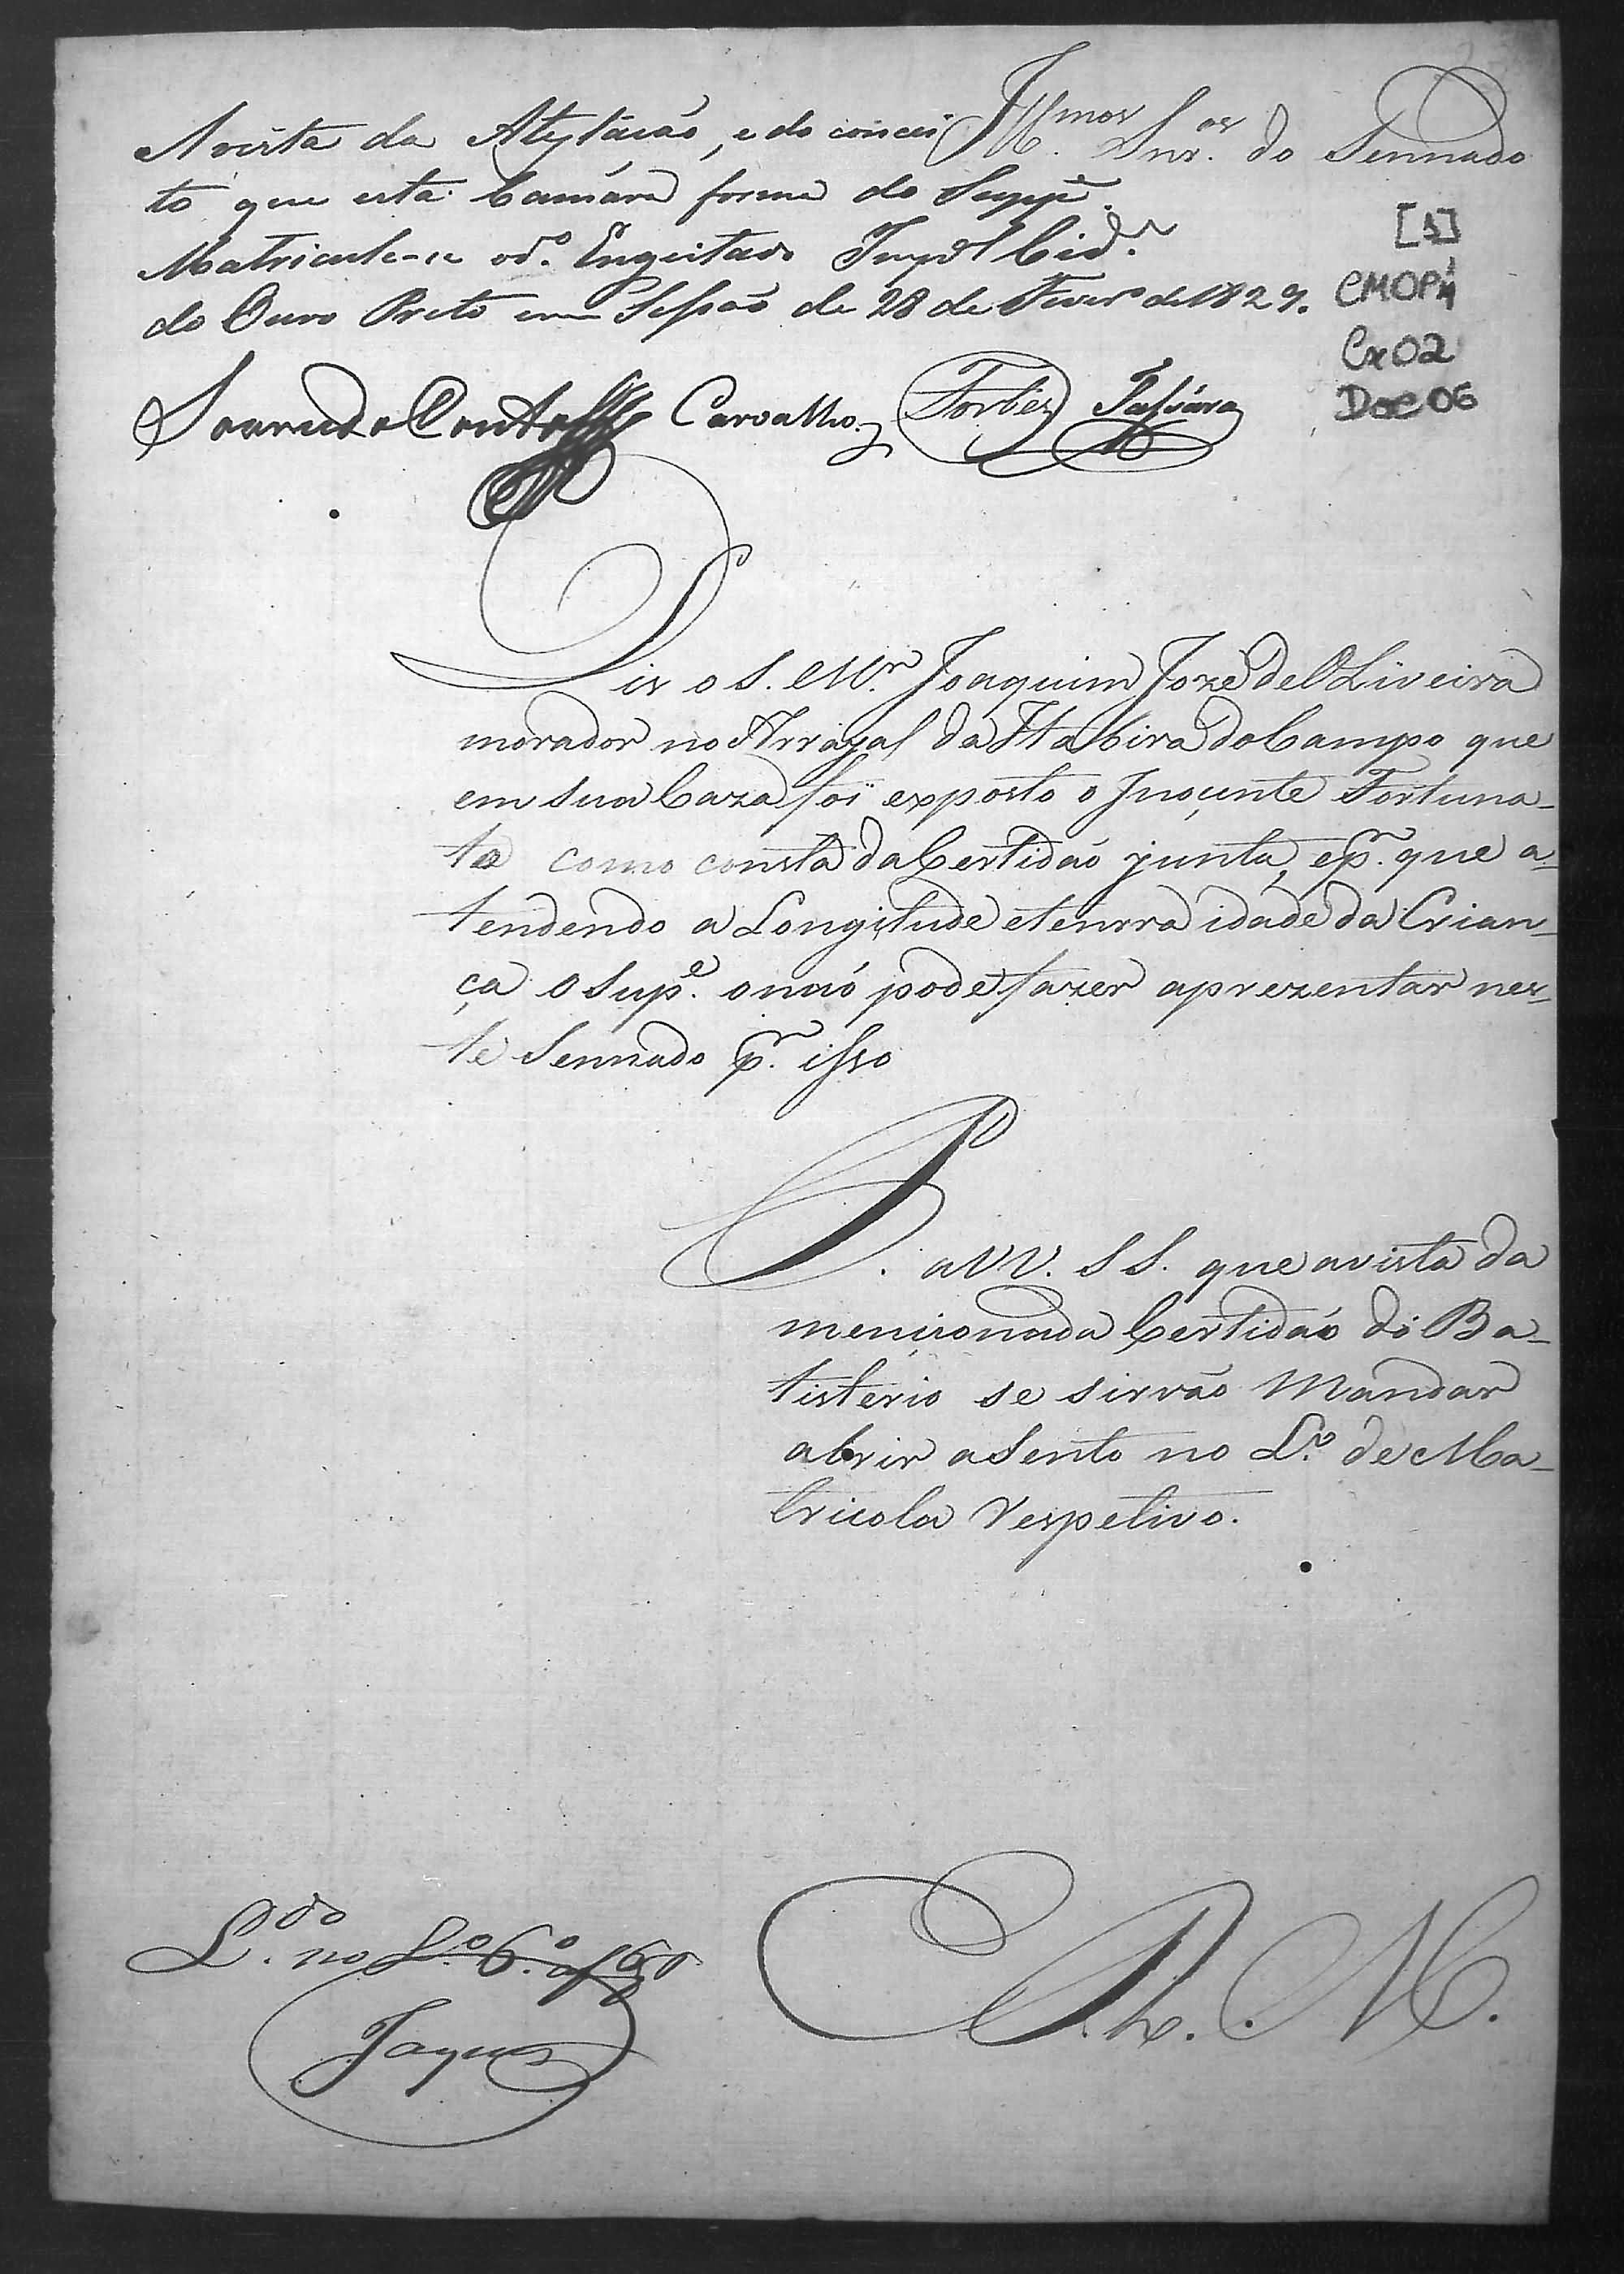 Illmos. Snrs. do Sennado
A vista da Atestacão, e do concei
to que esta Camára forma do Suppe.
Matricule-se o do. Engeitado Impal Cide.
do Ouro Preto em Sessão de 28 de Fevero de 1829.
Carvalho Forbes
[1]
CMOP
Cx02
Doc 06
Dis o S. Mr. Joaquim Jozé de OLiveira
morador no Arrayal da Itabira do Campo que
em sua Caza foi exposto o Inoçente Fortuna-
to como consta da Certidaó junta, e pr. que a-
tendendo a Longitude e tenrra idade da Crian-
ça o Supe. o naó pode fazer aprezentar nes-
te Sennado pr. isso
P. a VV. S S. que a vista da
mencionada Certidaó do Ba-
tisterio se sirvão Mandar
abrir aSento no Lo. de Ma-
tricola Respetivo.
E. R. M.
Ldo. no Lo. 6o. a f 60
Jaques